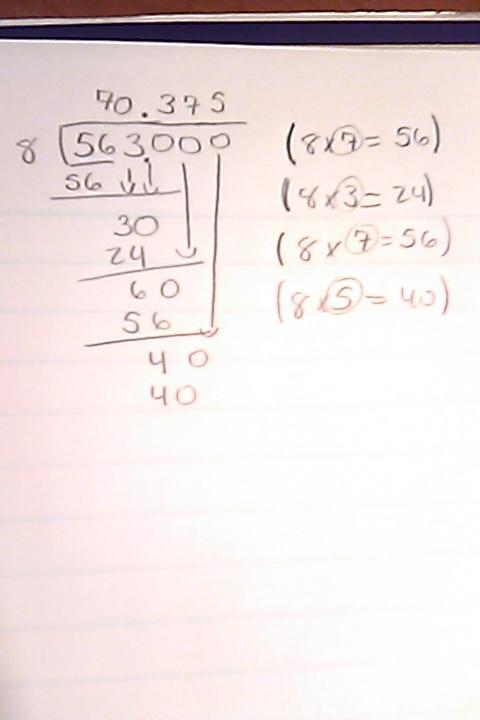 70.375
8 563.000 (8×7=56)
56
(8×3=24)
30
24 (8×7=56)
60
(8×5=40)
56
40
40